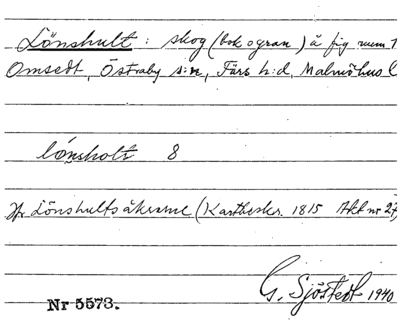 Lönshult: skog (bok o gran) å fig num 1
Omsedt, Östraby s:n, Färs h:d, Malmöhus l
lónsholt 8
Jfr Lönshultsåkrarne (Kartbeskr. 1815 Akt nr 27)
G. Sjöstedt 1940
Nr 5573.